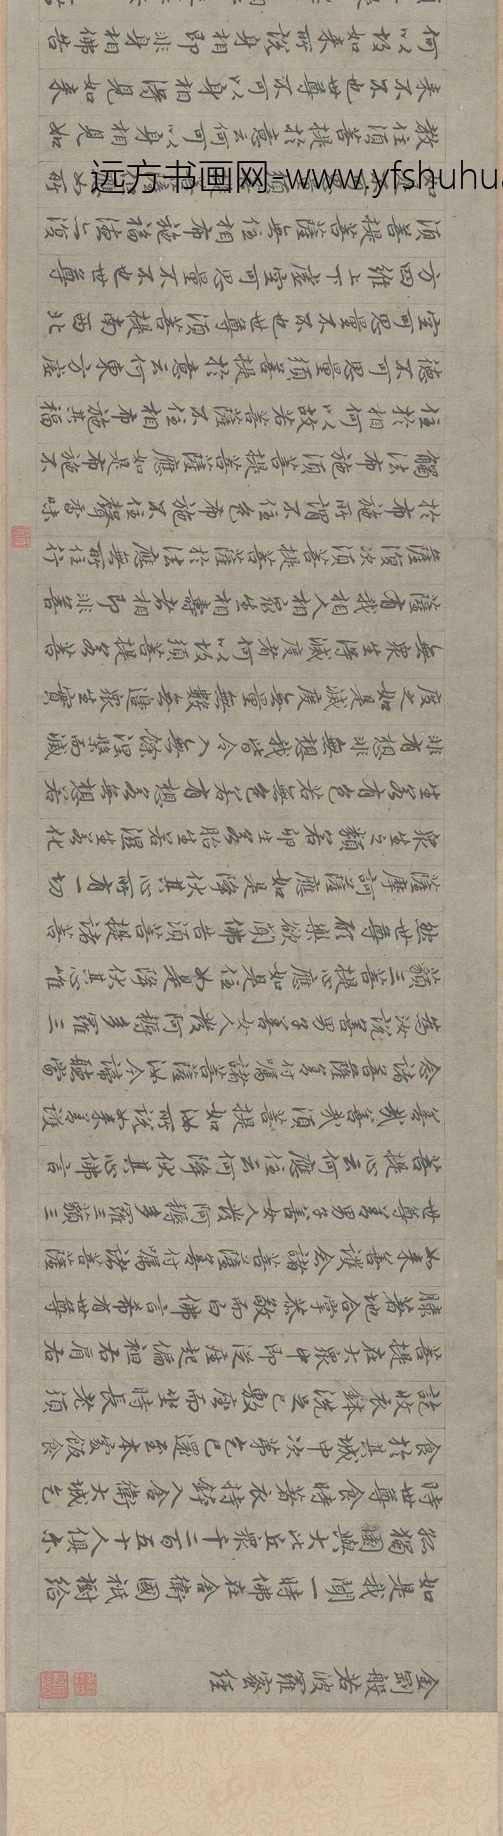 金剛般若波羅蜜經
如是我聞一時佛在舍衛國祇樹給
孤獨園與大比丘眾千二百五十人俱爾
時世尊食時著衣持鉢入舍衛大城乞
食於其城中次第乞已還至本處飯食
訖收衣鉢洗足已敷座而坐時長老須
菩提在大眾中即從座起偏袒右肩右
膝著地合掌恭敬而白佛言希有世尊
如來善護念諸菩薩善付囑諸菩薩
世尊善男子善女人發阿耨多羅三藐三
菩提心云何應住云何降伏其心佛言
善哉善哉須菩提如汝所說如來善護
念諸菩薩善付囑諸菩薩汝今諦聽當
為汝說善男子善女人發阿耨多羅三
藐三菩提心應如是住如是降伏其心唯
然世尊願樂欲聞佛告須菩提諸菩
薩摩訶薩應如是降伏其心所有一切
眾生之類若卵生若胎生若濕生若化
生若有色若無色若有想若無想若
非有想非無想我皆令入無餘涅槃而滅
度之如是滅度無量無數無邊眾生實
無眾生得滅度者何以故須菩提若菩
薩有我相人相眾生相壽者相即非菩
薩復次須菩提菩薩於法應無所住行
於布施所謂不住色布施不住聲香味
觸法布施須菩提菩薩應如是布施不
住於相何以故若菩薩不住相布施其福
德不可思量須菩提於意云何東方虛
空可思量不不也世尊須菩提南西北
方四維上下虛空可思量不不也世尊
須菩提菩薩無住相布施福德亦復
如所
教住須菩提於意云何可以身相見如
來不不也世尊不可以身相得見如來
何以故如來所說身相即非身相佛告
远方书画网-www.yfshuhua